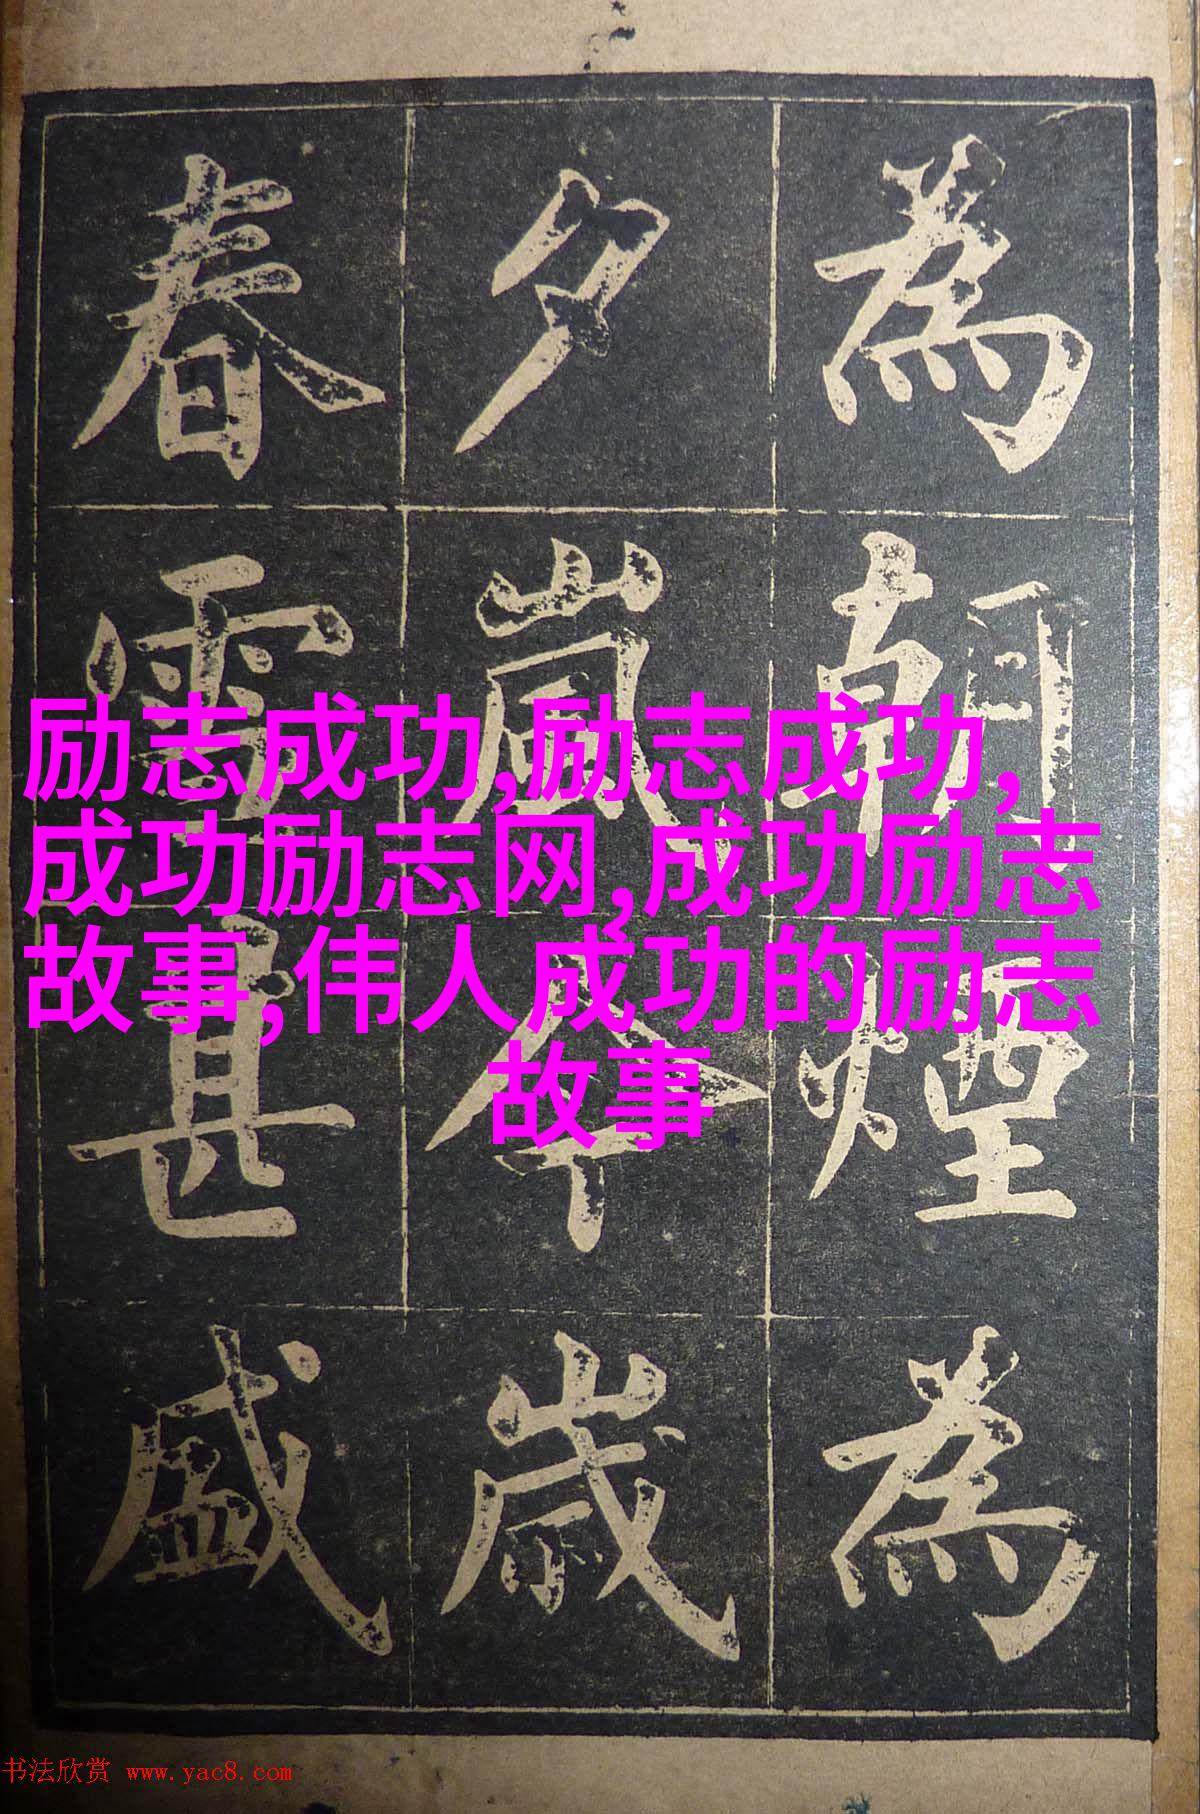 為朝煙為
夕嵐今歳
春雪甚盛
励志成功,励志成功,
成功励志网,成功励志
故事,伟人成功的励志
故事
书法欣赏 www.yac8.com